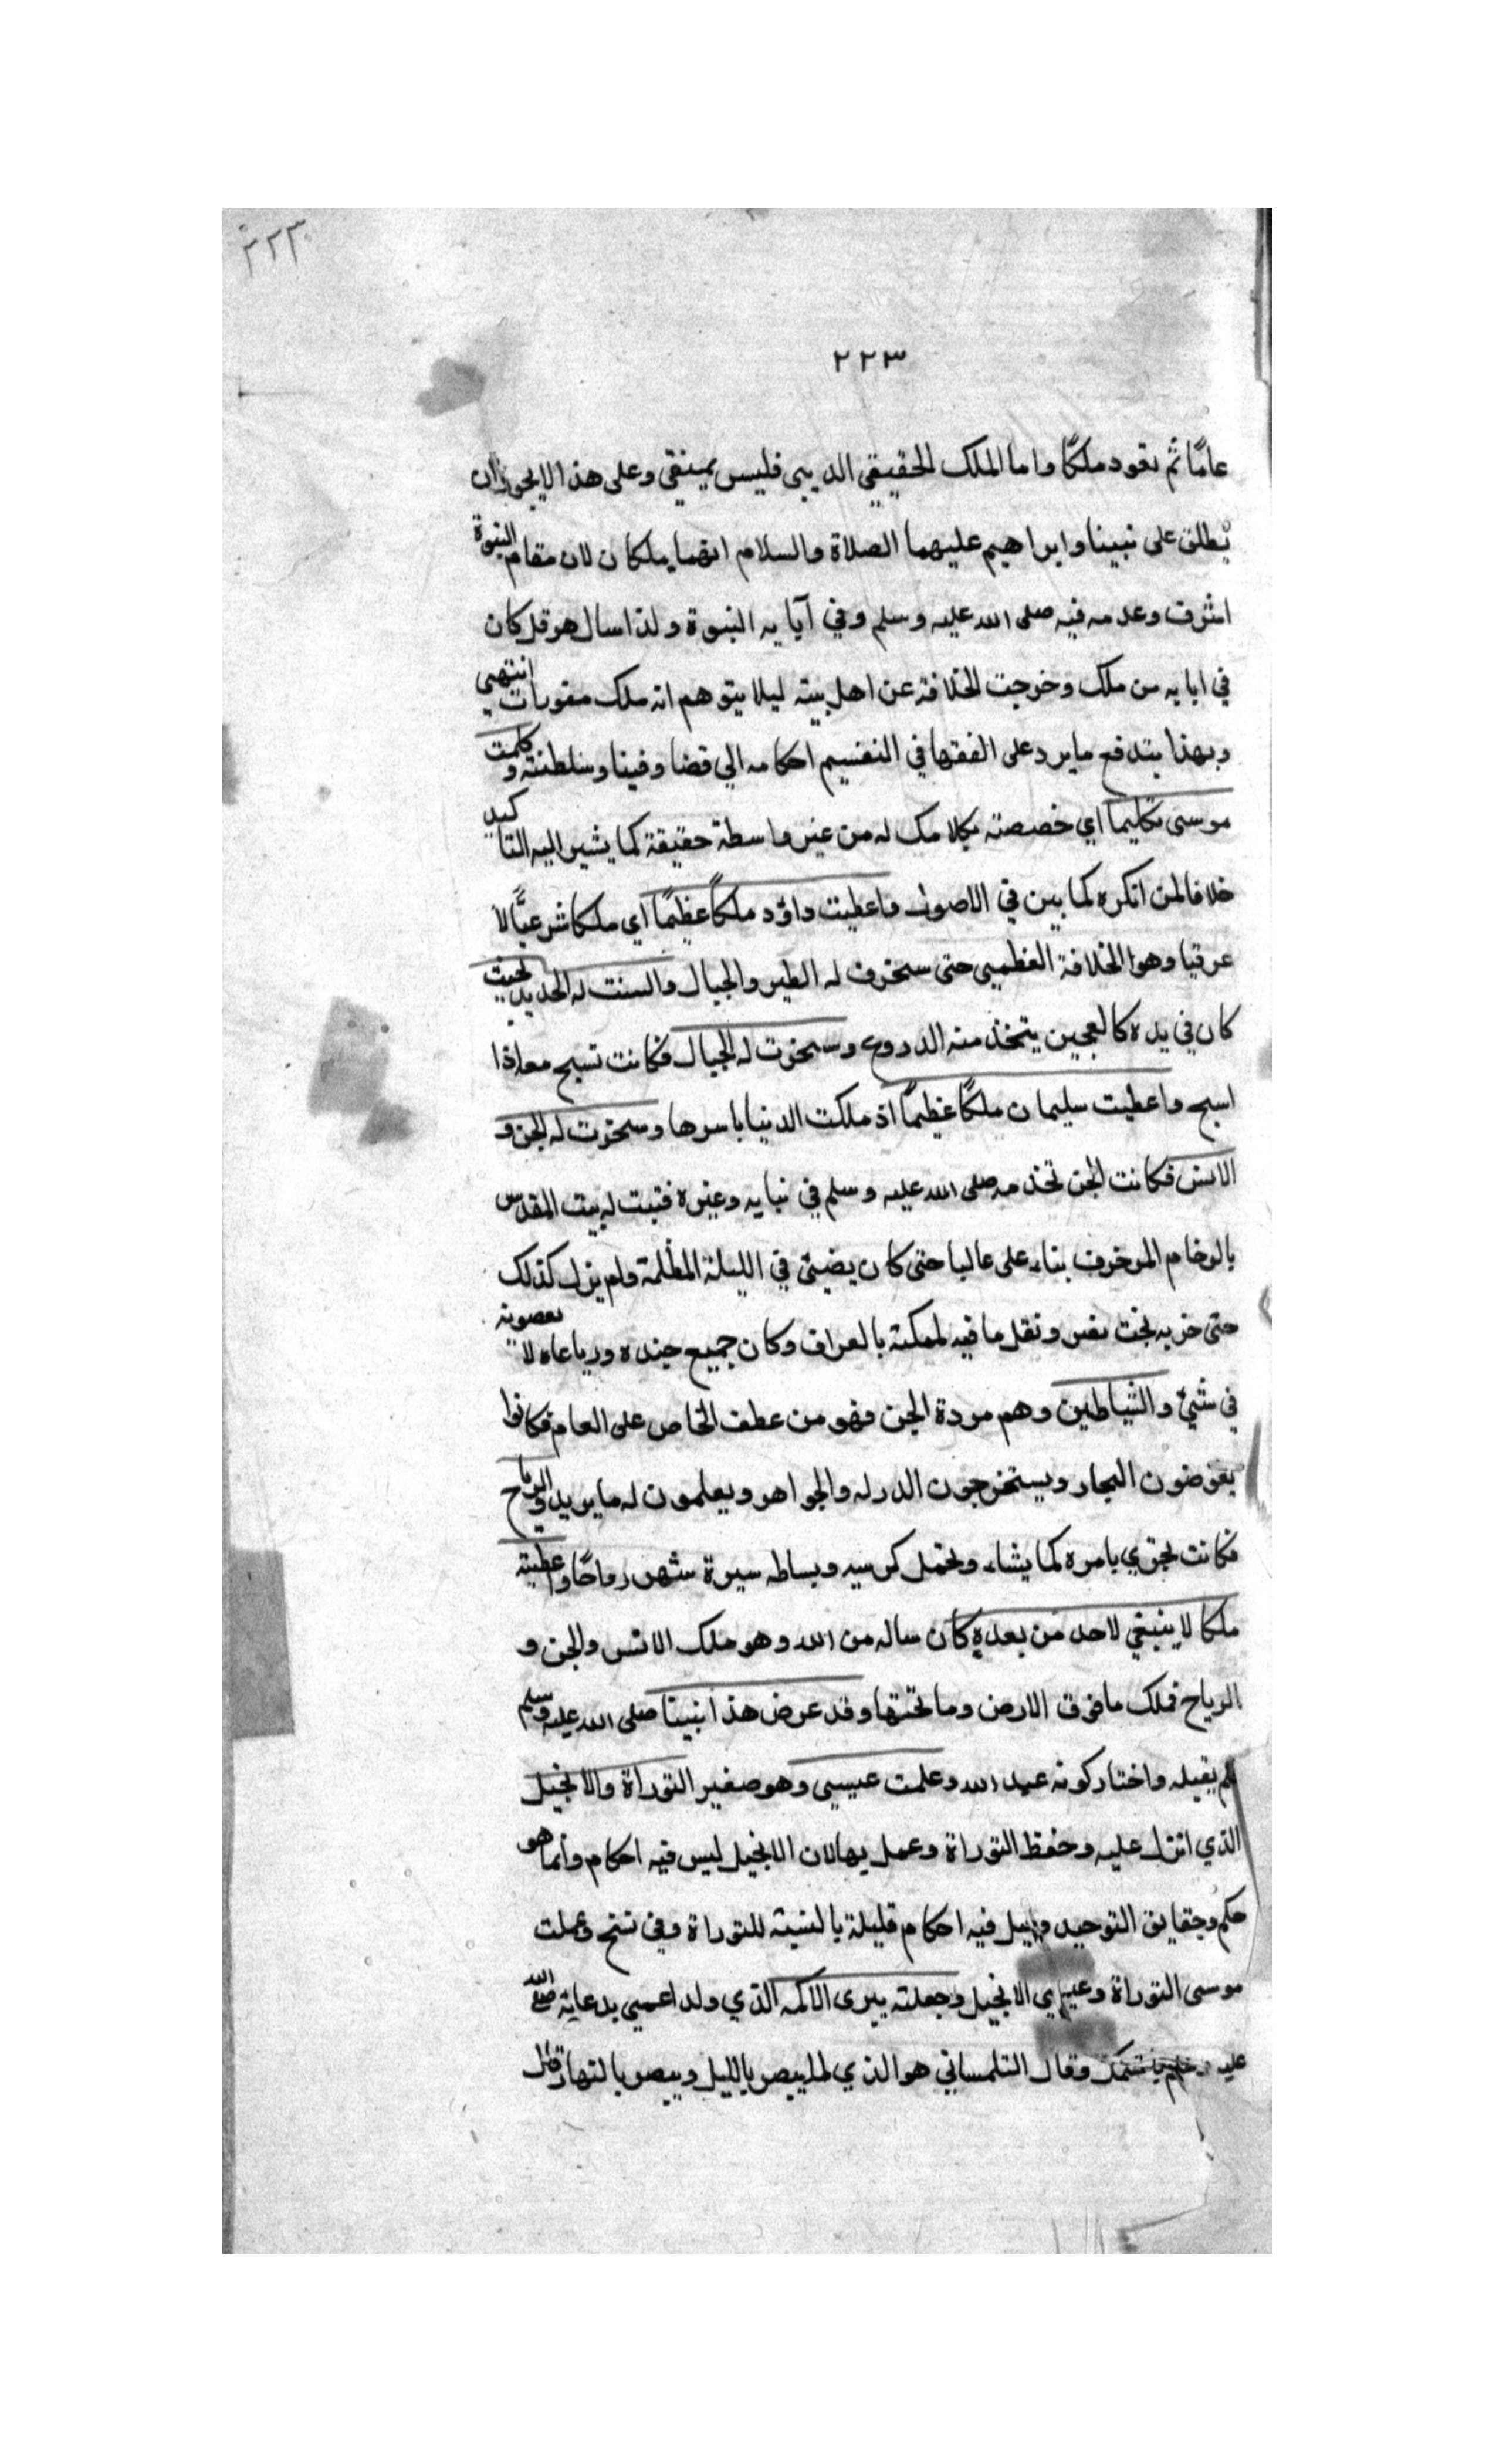 ٢٢٣
٢٢٣
عامًا ثم تعود ملكًا واما الملك الحقيقي الديبي فليس بمينقي وعلى هذا لا يجوز ان
يُطلق على نبينا وابراهيم عليهما الصلاة والسلام انهما يملكان لان مقام النبوة
اشرف وعدمه فيه صلى الله عليه وسلم وفي آبايه النبوة ولذا سال هرقل كان
في ابايه من ملك وخرجت الخلافة عن اهل بيته ليلا يتوهم انه ملك متوارث انتهى
وبهذا يندفع ما يرد على الفقها في التقسيم احكامه الي قضا وفينا وسلطنته وكلمت
موسى تكليما اي خصصته بكلامك له من غير واسطة حقيقة كما يشير اليه التاكيد
خلافا لمن انكره كما بين في الاصول واعطيت داوٗد ملكًا عظيمًا اي ملكا شرعيًّا لا
عرقيا وهوا الخلافة العظمى حتى سخرت له الطير والجبال والنت له الحديد بحيث
كان في يده كالعجين يتخذ منه الدروع وسخرت له الجبال فكانت تسبح معه اذا
اسبح واعطيت سليمان ملكًا عظيمًا اذ ملكت الدنيا باسرها وسخرت له الجن و
الانس فكانت الجن تخدمه صلى الله عليه وسلم في بنايه وغيره فبنت له بيت المقدس
بالرخام المزخرف بناء على عاليا حتى كان يضيئ في الليلة المظلمة ولم يزل كذلك
حتى خربه بخت نصر ونقل ما فيه لمملكته بالعراق وكان جميع جنده ورياعاه لا يعصونه
في شيئ والشياطين وهم مردة الجن فهو من عطف الخاص على العام فكانوا
يغوضون البحار ويستخرجون الدر له والجواهر ويعلمون له ما يريد والرياح
فكانت تجري بامره كما يشاء وتحمل كرسيه وبساطه سيرة شهر رواحًا واعطيته
ملكا لا ينبغي لاحد من بعده كان ساله من الله وهو ملك الانس والجن و
الرياح فملك ما فوق الارض وما تحتها وقد عرض هذا نبينا صلى الله عليه وسلم
لم يقبله واختار كونه عبد الله وعلمت عيسى وهو صغير التوراة والانجيل
الذي انزل عليه وحفظ التوراة وعمل بها لان الانجيل ليس فيه احكام وانما هو
حكم وحقايق التوحيد وقيل فيه احكام قليلة بالنسبة للتوراة وفي نسخ وعملت
موسى التوراة وعيسى الانجيل وجعلته يبرى الاكمه الذي ولد اعمى بدعايه صلى الله
عليه وقال التلمساني هو الذي لما يبصر بالليل ويبصر بالنهار وقيل